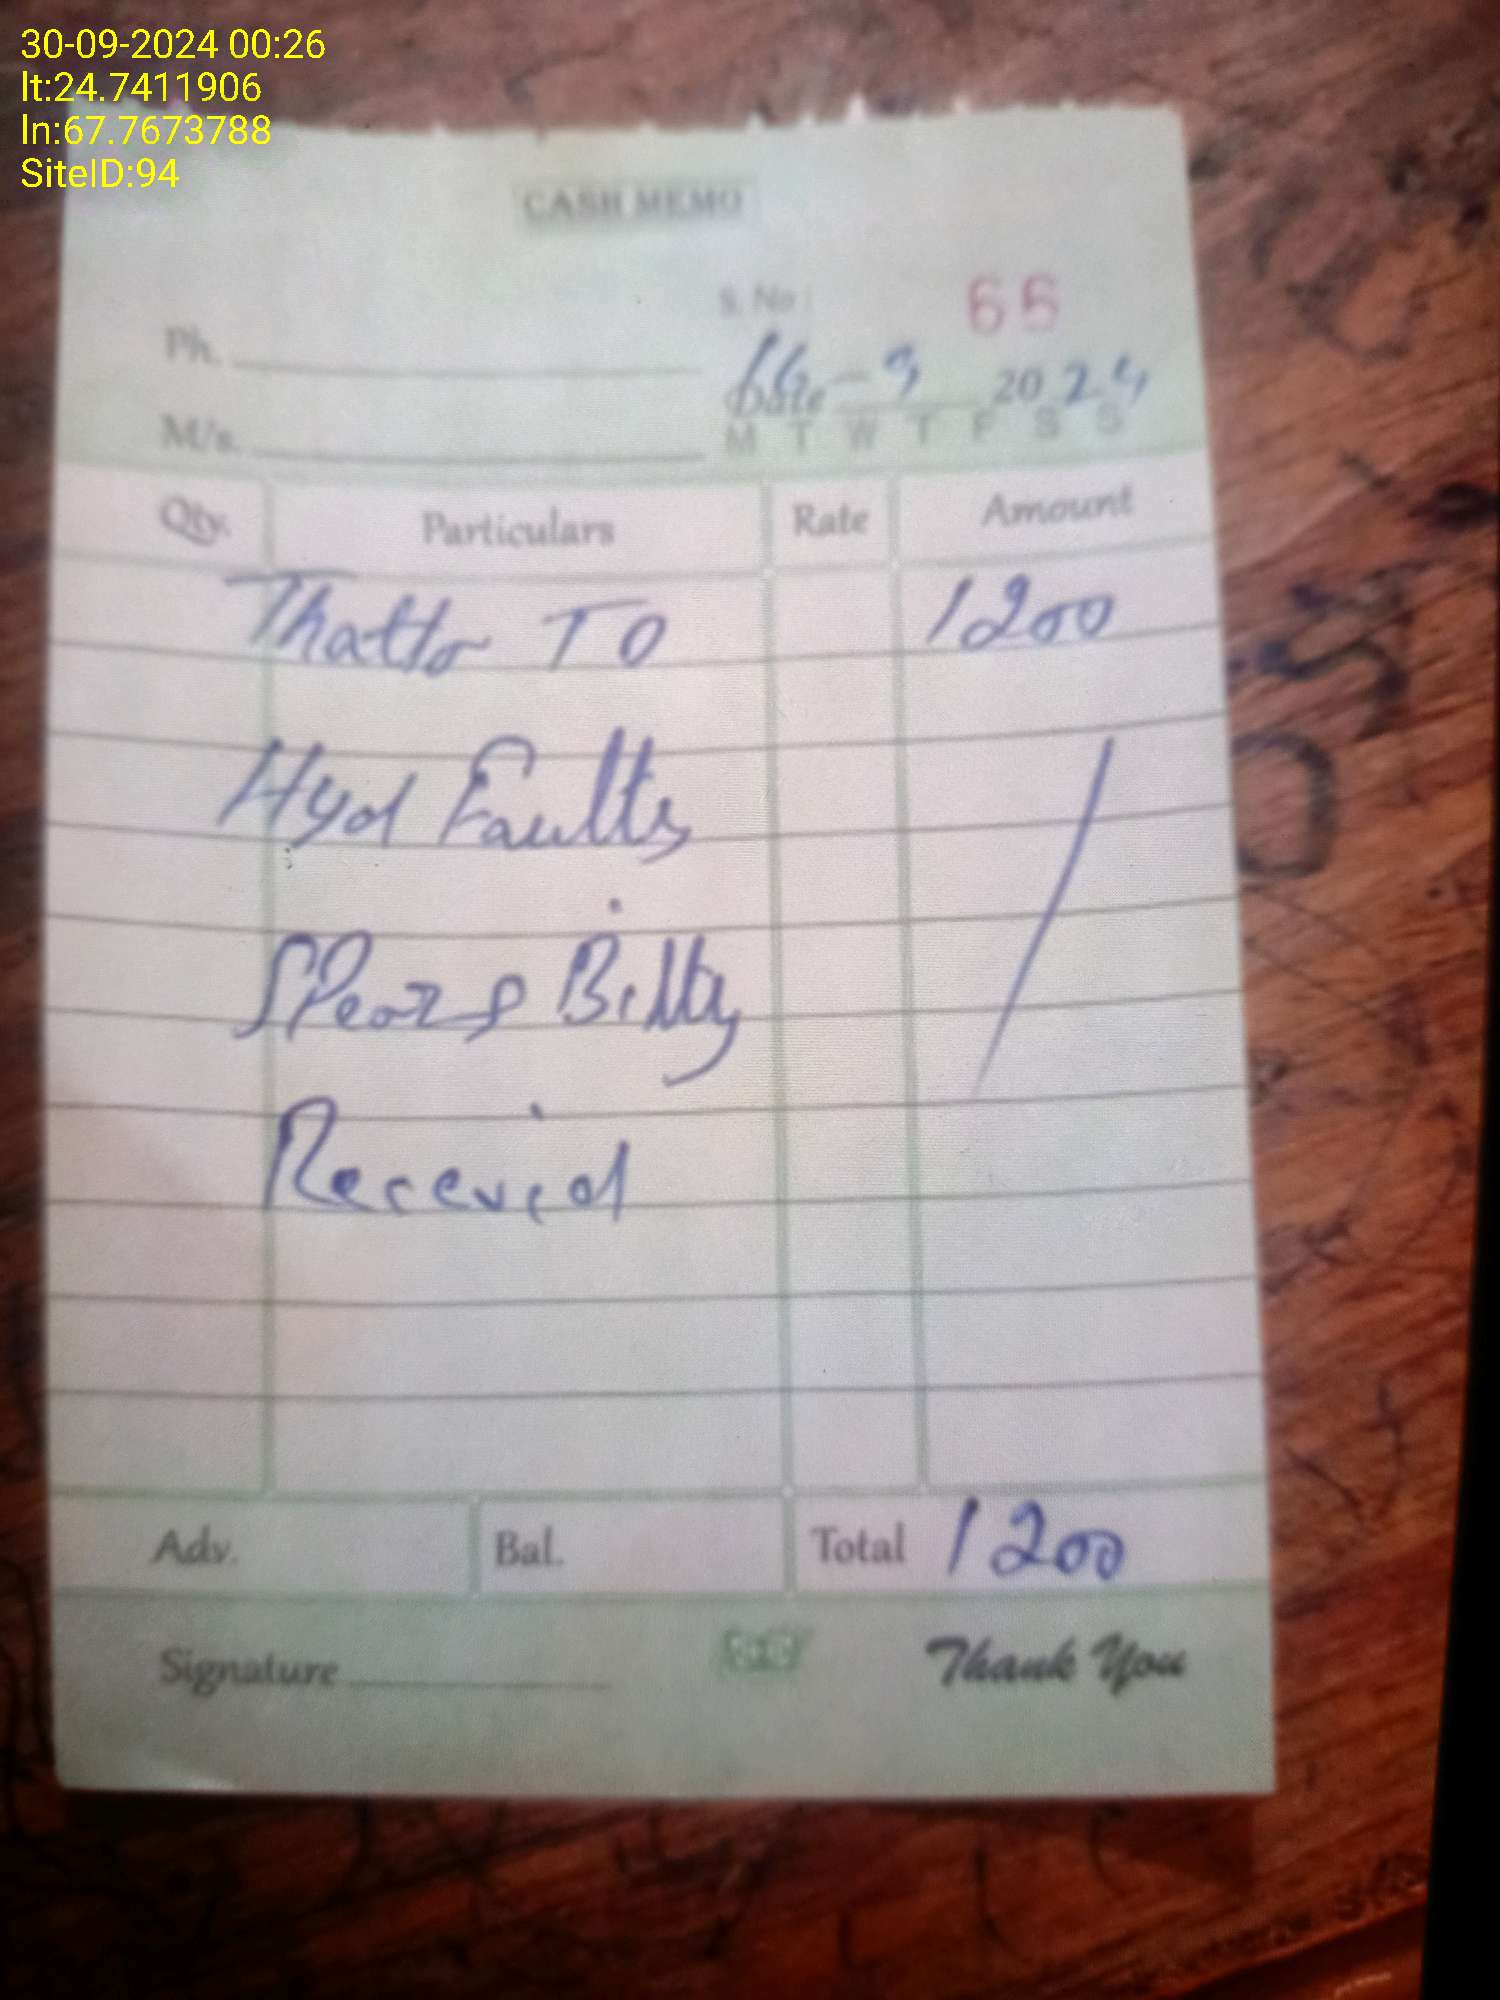 30-09-2024 00:26
lt:24.7411906
ln:67.7673788
SiteID:94
CASH MEMO
S. No : 66
Ph.
Date - 9 2024
M/s.
M T W T F S S
Qty. Particulars Rate Amount
Thatta TO 1200
Hyd Faulty
Spears Billty
Recevied
Adv. Bal. Total 1200
Signature Thank You